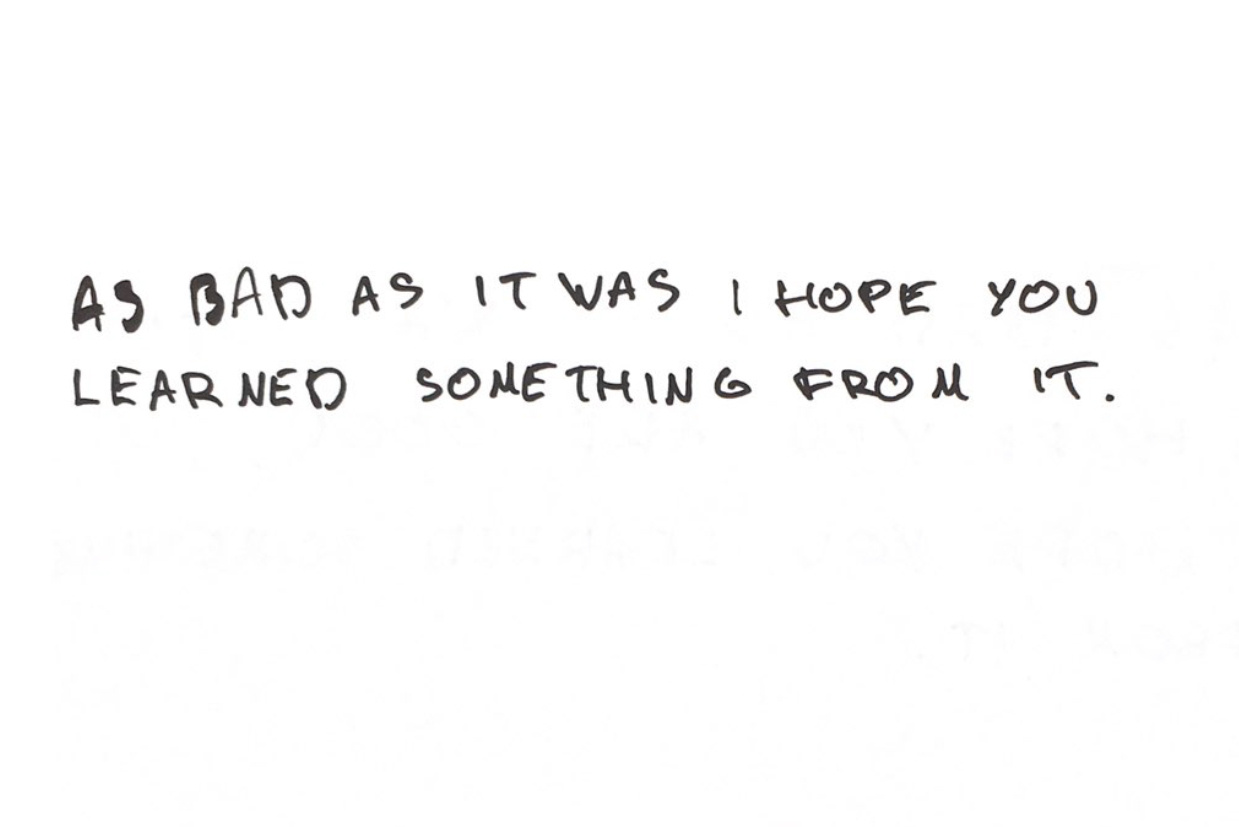 AS BAD AS IT WAS I HOPE YOU
LEARNED SOMETHING FROM IT.